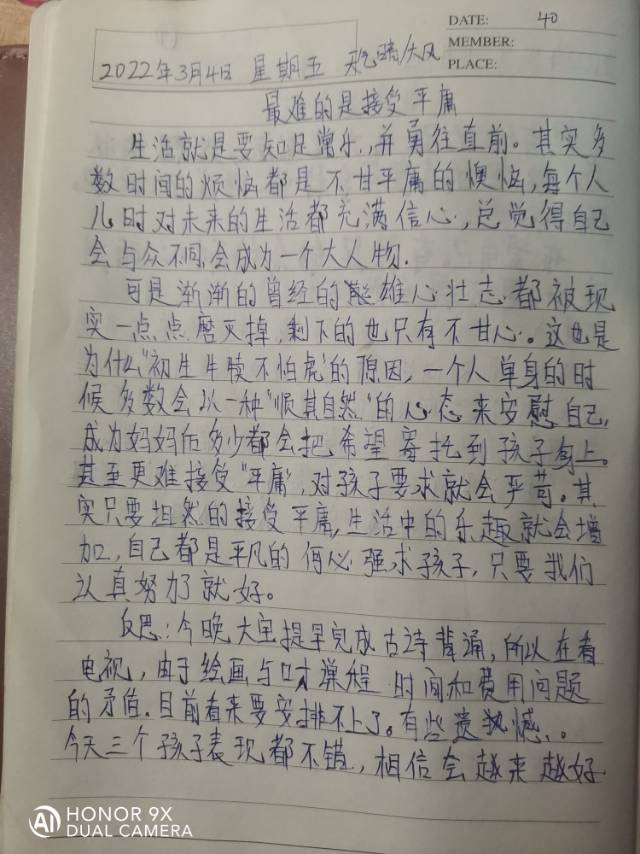 DATE: 40
MEMBER:
PLACE:
2022年3月4日 星期五 天气晴/大风
最难的是接受平庸
生活就是要知足常乐,并勇往直前。其实多
数时间的烦恼都是不甘平庸的懊恼,每个人
儿时对未来的生活都充满信心,总觉得自己
会与众不同,会成为一个大人物.
可是渐渐的曾经的雄心壮志都被现
实一点点磨灭掉,剩下的也只有不甘心。这也是
为什么"初生牛犊不怕虎"的原因,一个人单身的时
候多数会以一种"顺其自然"的心态来安慰自己,
成为妈妈后多少都会把希望寄托到孩子身上。
甚至更难接受"平庸",对孩子要求就会严苛。其
实只要坦然的接受平庸,生活中的乐趣就会增
加,自己都是平凡的何必强求孩子,只要我们
认真努力了就好。
反思:今晚大宝提早完成古诗背诵,所以在看
电视,由于绘画与口才课程时间和费用问题
的矛盾.目前看来要安排不上了。有些遗憾。
今天三个孩子表现都不错,相信会越来越好
AI HONOR 9X
DUAL CAMERA